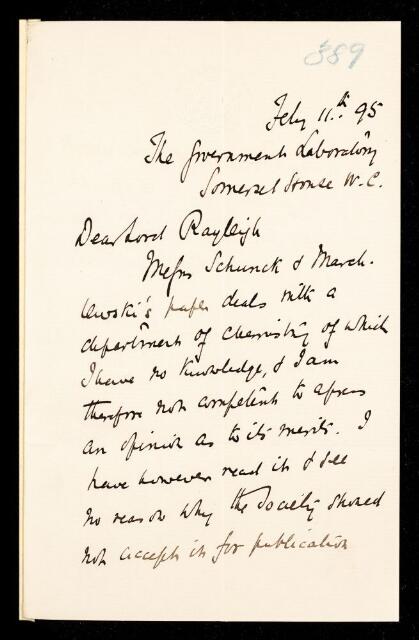 389
Feby 11th 95
The Government Laboratory
Somerset House W.C.
Dear Lord Rayleigh
Messrs Schunck & March-
lewski's paper deals with a
department of chemistry of which
I have no knowledge, & I am
therefore not competent to express
an opinion as to its merits. I
have however read it & see
no reason why the Society should
not accept it for publication